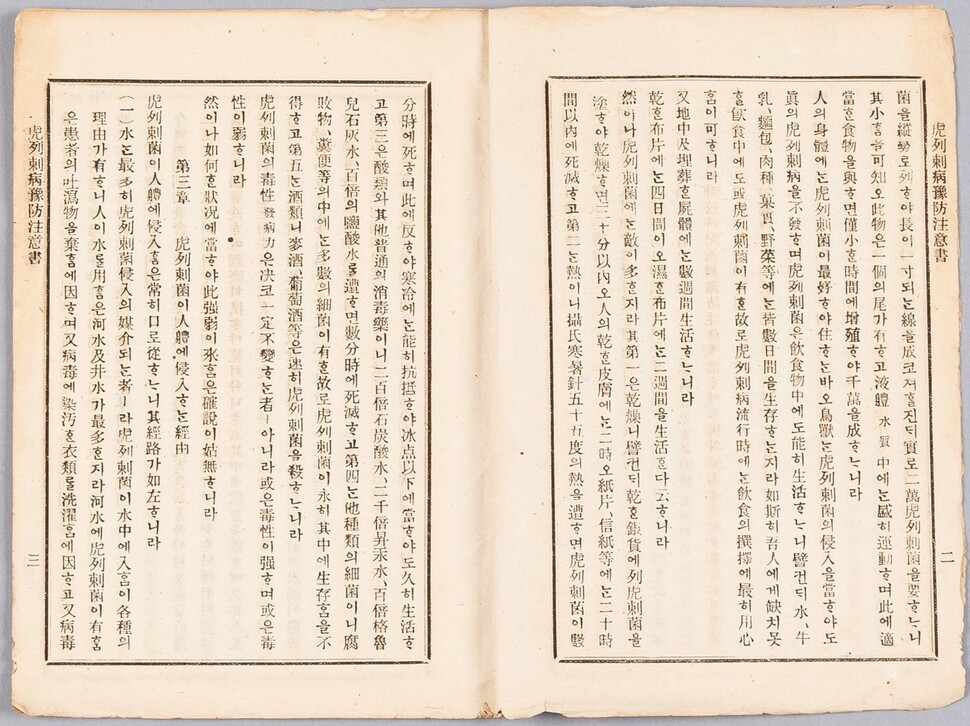 虎列剌病豫防注意書
二
菌을縱勢로列ᄒᆞ야長이一寸되ᄂᆞᆫ線을成코져ᄒᆞᆯ진ᄃᆡ實로二萬虎列剌菌을要ᄒᆞᄂᆞ니
其小ᄒᆞᆷ을可知오此物은一個의尾가有ᄒᆞ고液體 水質 中에ᄂᆞᆫ盛히運動ᄒᆞ며此에適
當ᄒᆞᆫ食物을與ᄒᆞ면僅小ᄒᆞᆫ時間에增殖ᄒᆞ야千萬을成ᄒᆞᄂᆞ니라
人의身體에ᄂᆞᆫ虎列剌菌이最好ᄒᆞ야住ᄒᆞᄂᆞᆫ바오鳥獸ᄂᆞᆫ虎列剌菌의侵入을當ᄒᆞ야도
眞의虎列剌病을不發ᄒᆞ며虎列剌菌은飮食物中에도能히生活ᄒᆞᄂᆞ니譬컨ᄃᆡ水、牛
乳、麵包、肉種、菓實、野菜等에ᄂᆞᆫ皆數日間을生存ᄒᆞᄂᆞᆫ지라如斯히吾人에게缺치못
ᄒᆞᆯ飮食中에도或虎列剌菌이有ᄒᆞᆫ故로虎列剌病流行時에ᄂᆞᆫ飮食의撰擇에最히用心
ᄒᆞᆷ이可ᄒᆞ니라
又地中及埋葬ᄒᆞᆫ屍體에ᄂᆞᆫ數週間生活ᄒᆞᄂᆞ니라
乾ᄒᆞᆫ布片에ᄂᆞᆫ四日間이오濕ᄒᆞᆫ布片에ᄂᆞᆫ二週間을生活ᄒᆞᆫ다云ᄒᆞᄂᆞ니라
然이나虎列剌菌에ᄂᆞᆫ敵이多ᄒᆞᆫ지라其第一은乾燥니譬컨ᄃᆡ乾ᄒᆞᆫ銀貨에列虎列剌菌을
塗ᄒᆞ야乾燥ᄒᆞ면三十分以內오人의乾ᄒᆞᆫ皮膚에ᄂᆞᆫ二時오紙片、信紙等에ᄂᆞᆫ二十時
間以內에死滅ᄒᆞ고第二ᄂᆞᆫ熱이니攝氏寒暑針五十五度의熱을遭ᄒᆞ면虎列剌菌이數
分時에死ᄒᆞ며此에反ᄒᆞ야寒冷에ᄂᆞᆫ能히抗抵ᄒᆞ야氷点以下에當ᄒᆞ야도久히生活ᄒᆞ
고第三은酸類와其他普通의消毒藥이니二百倍石炭酸水、二千倍昇汞水、百倍格魯
兒石灰水、百倍의鹽酸水를遭ᄒᆞ면數分時에死滅ᄒᆞ고第四ᄂᆞᆫ他種類의細菌이니腐
敗物、糞便等의中에ᄂᆞᆫ多數의細菌이有ᄒᆞᆫ故로虎列剌菌이永히其中에生存ᄒᆞᆷ을不
得ᄒᆞ고第五ᄂᆞᆫ酒類니麥酒、葡萄酒等은速히虎列剌菌을殺ᄒᆞᄂᆞ니라
虎列剌菌의毒性 發病力 은決코一定不變ᄒᆞᄂᆞᆫ者ㅣ아니라或은毒性이强ᄒᆞ며或은毒
性이弱ᄒᆞ니라
然이나如何ᄒᆞᆫ狀况에當ᄒᆞ야此强弱이來ᄒᆞᆷ은確說이姑無ᄒᆞ니라
第三章 虎列剌菌이人體에侵入ᄒᆞᄂᆞᆫ經由
虎列剌菌이人體에侵入ᄒᆞᆷ은常히口로從ᄒᆞᄂᆞ니其經路가如左ᄒᆞ니라
(一)水ᄂᆞᆫ最多히虎列剌菌侵入의媒介되ᄂᆞᆫ者ㅣ라虎列剌菌이水中에入ᄒᆞᆷ이各種의
理由가有ᄒᆞ니人이水를用ᄒᆞᆷ은河水及井水가最多ᄒᆞᆫ지라河水에虎列剌菌이有ᄒᆞᆷ
은患者의吐瀉物을棄ᄒᆞᆷ에因ᄒᆞ며又病毒에染汚ᄒᆞᆫ衣類를洗濯ᄒᆞᆷ에因ᄒᆞ고又病毒
虎列剌病豫防注意書
三